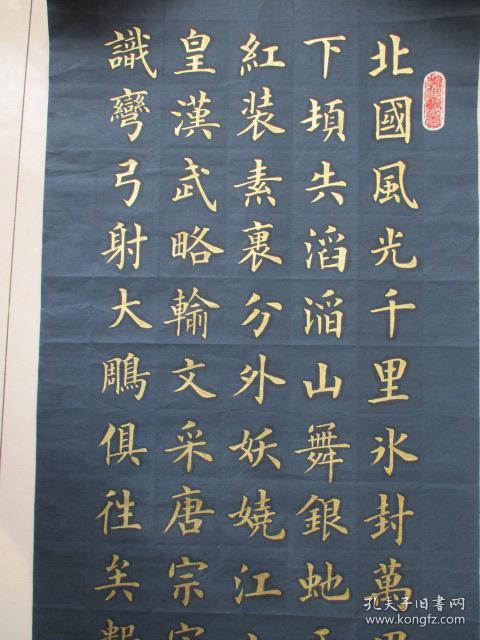 北國風光千里冰封萬
下頓失滔滔山舞銀虵
紅装素裹分外妖嬈江
皇漢武略輸文采唐宗
識彎弓射大鵰俱往矣數
孔夫子旧书网
www.kongfz.com